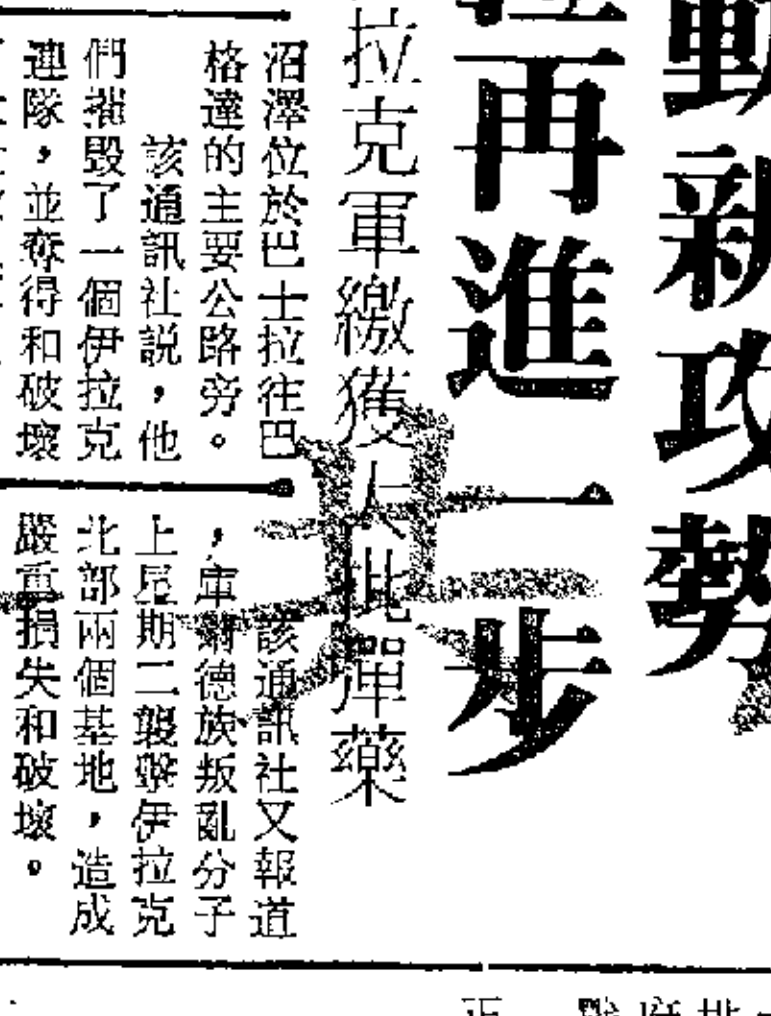 動新攻勢
再進一步
拉克軍繳獲大批彈藥
沼澤位於巴士拉往巴
格達的主要公路旁。
該通訊社説，他
們摧毀了一個伊拉克
連隊，並奪得和破壞
該通訊社又報道
，庫爾德族叛亂分子
上星期二襲擊伊拉克
北部兩個基地，造成
嚴重損失和破壞。